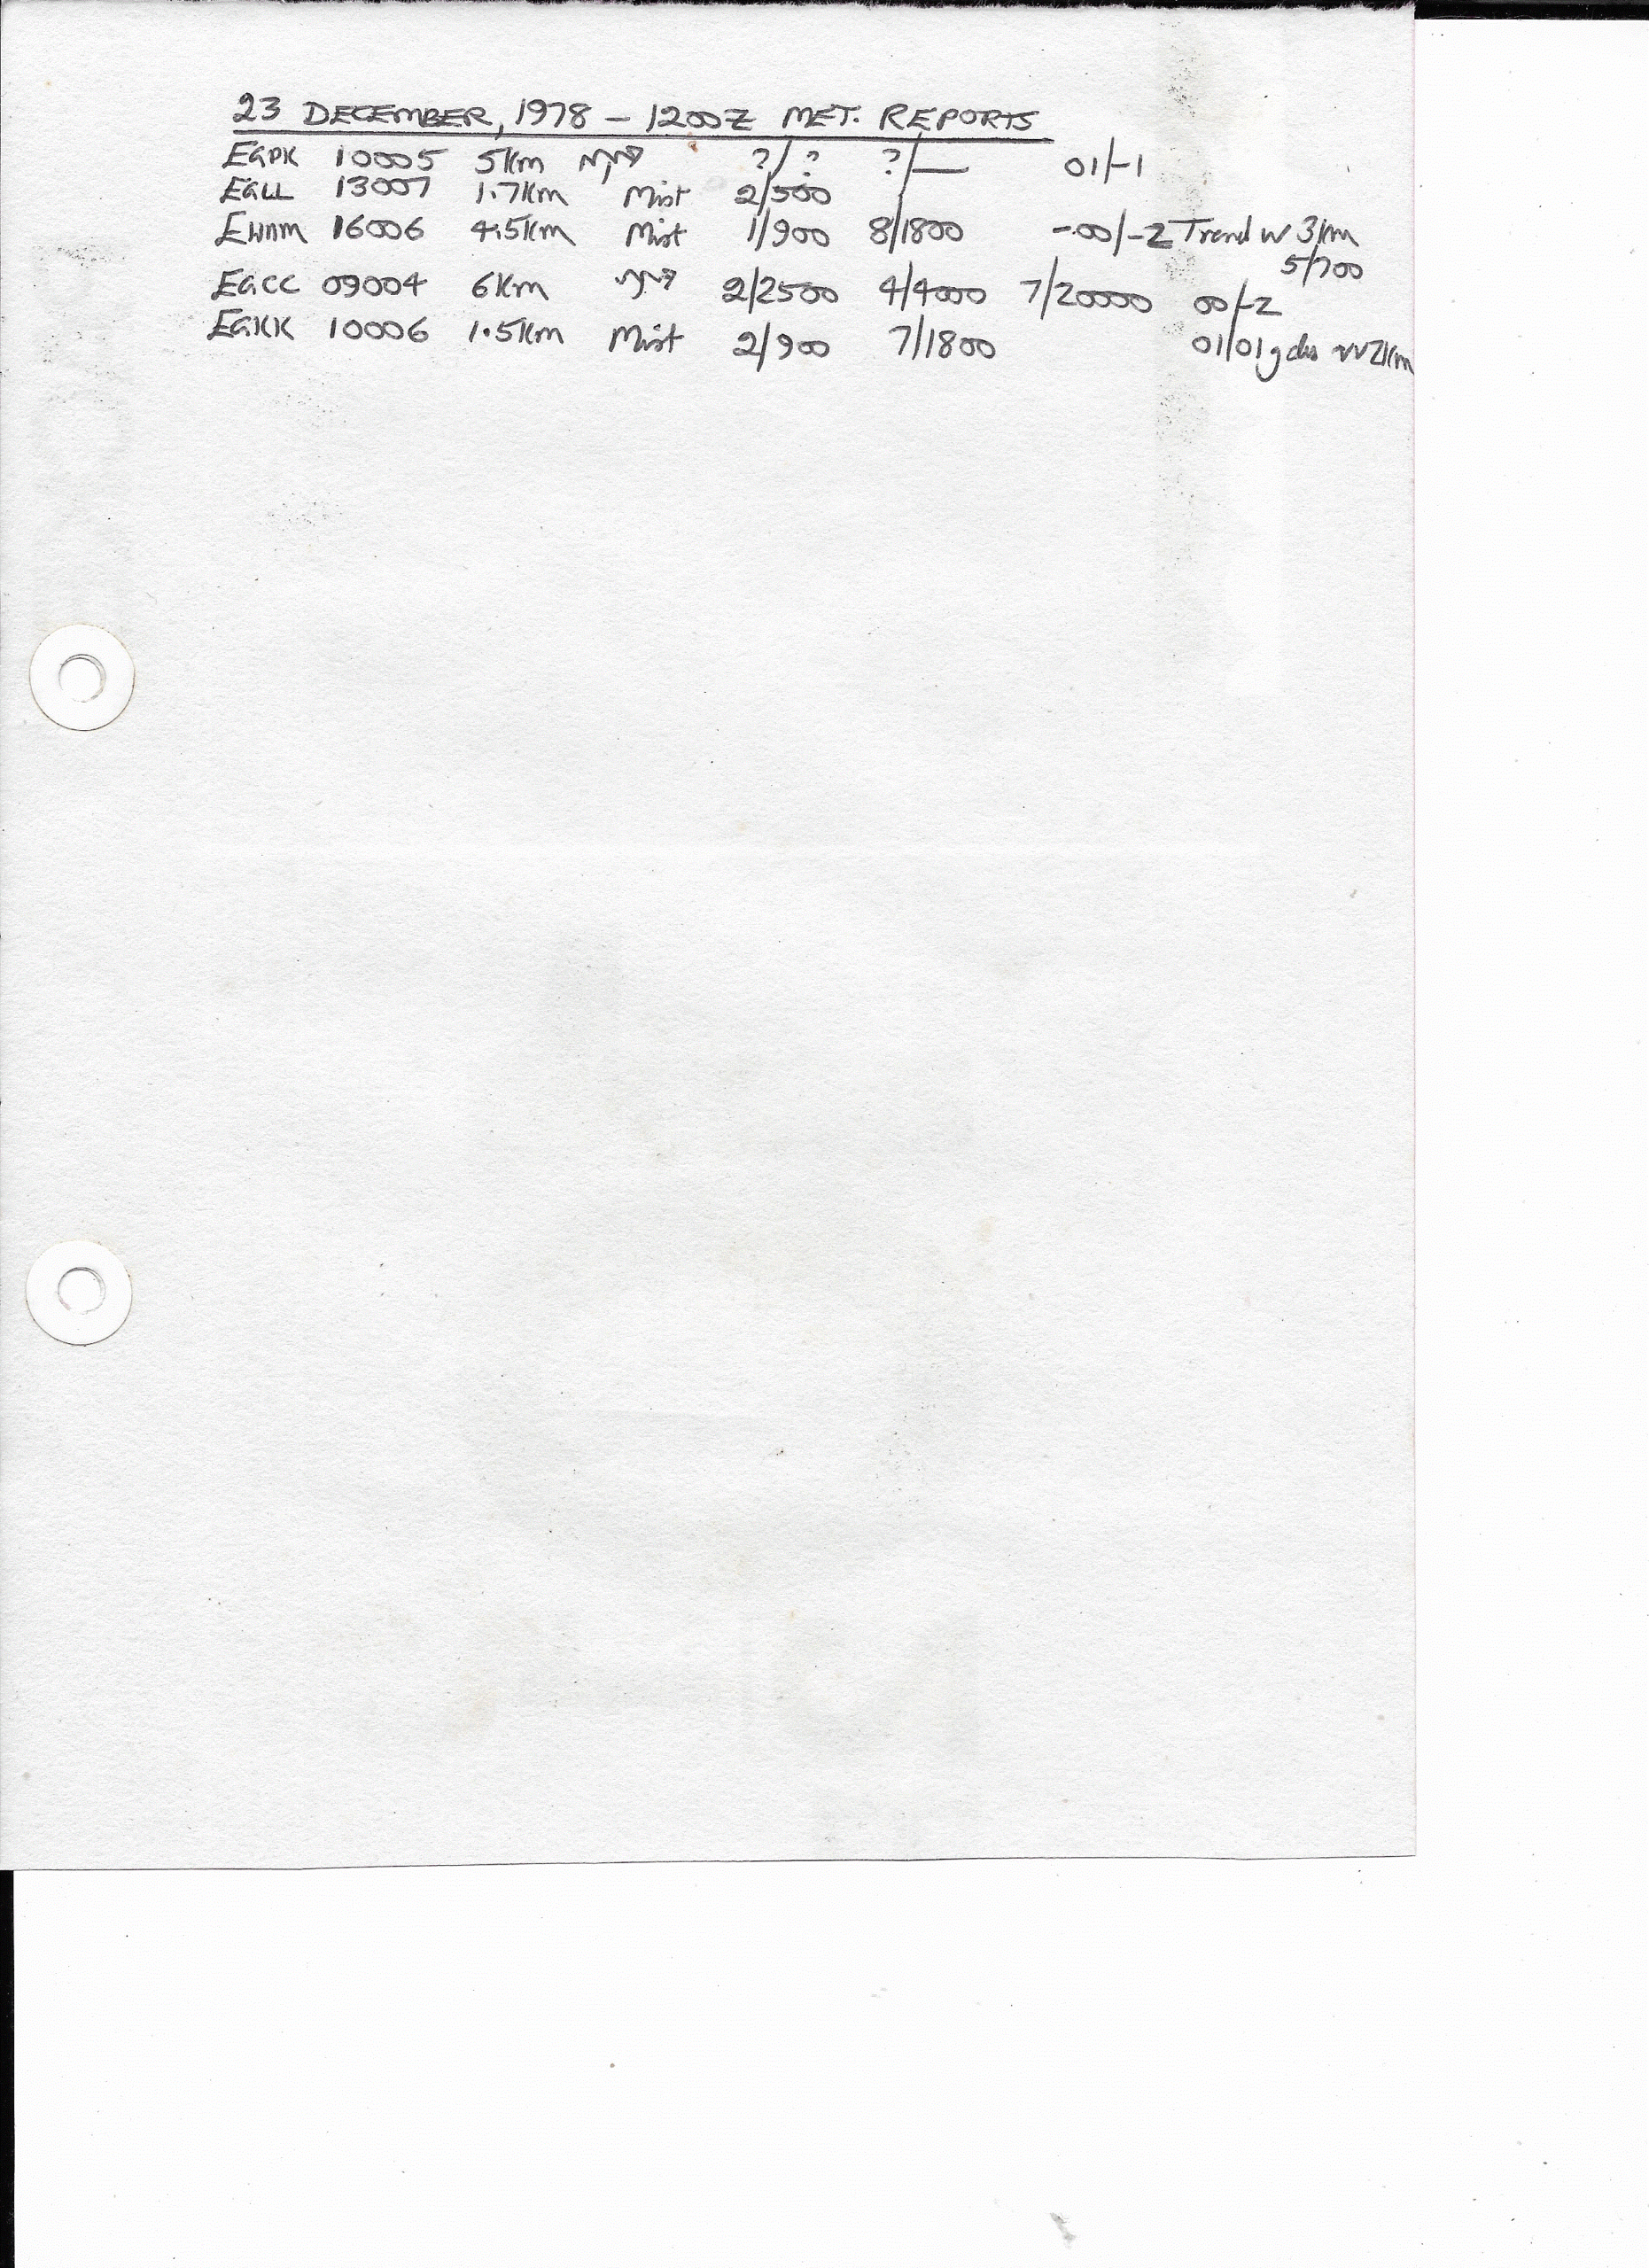 23 DECEMBER, 1978 - 1200Z MET. REPORTS
EGPK 10005 5Km ?/? ?/— 01/-1
EGLL 13007 1.7Km Mist 2/500
16006 4.5Km Mist 1/900 8/1800 -00/-2 Trend w 3Km
5/700
EGCC 09004 6Km 2/2500 4/4000 7/20000 00/-2
EGKK 10006 1.5Km Mist 2/900 7/1800 01/01 2Km